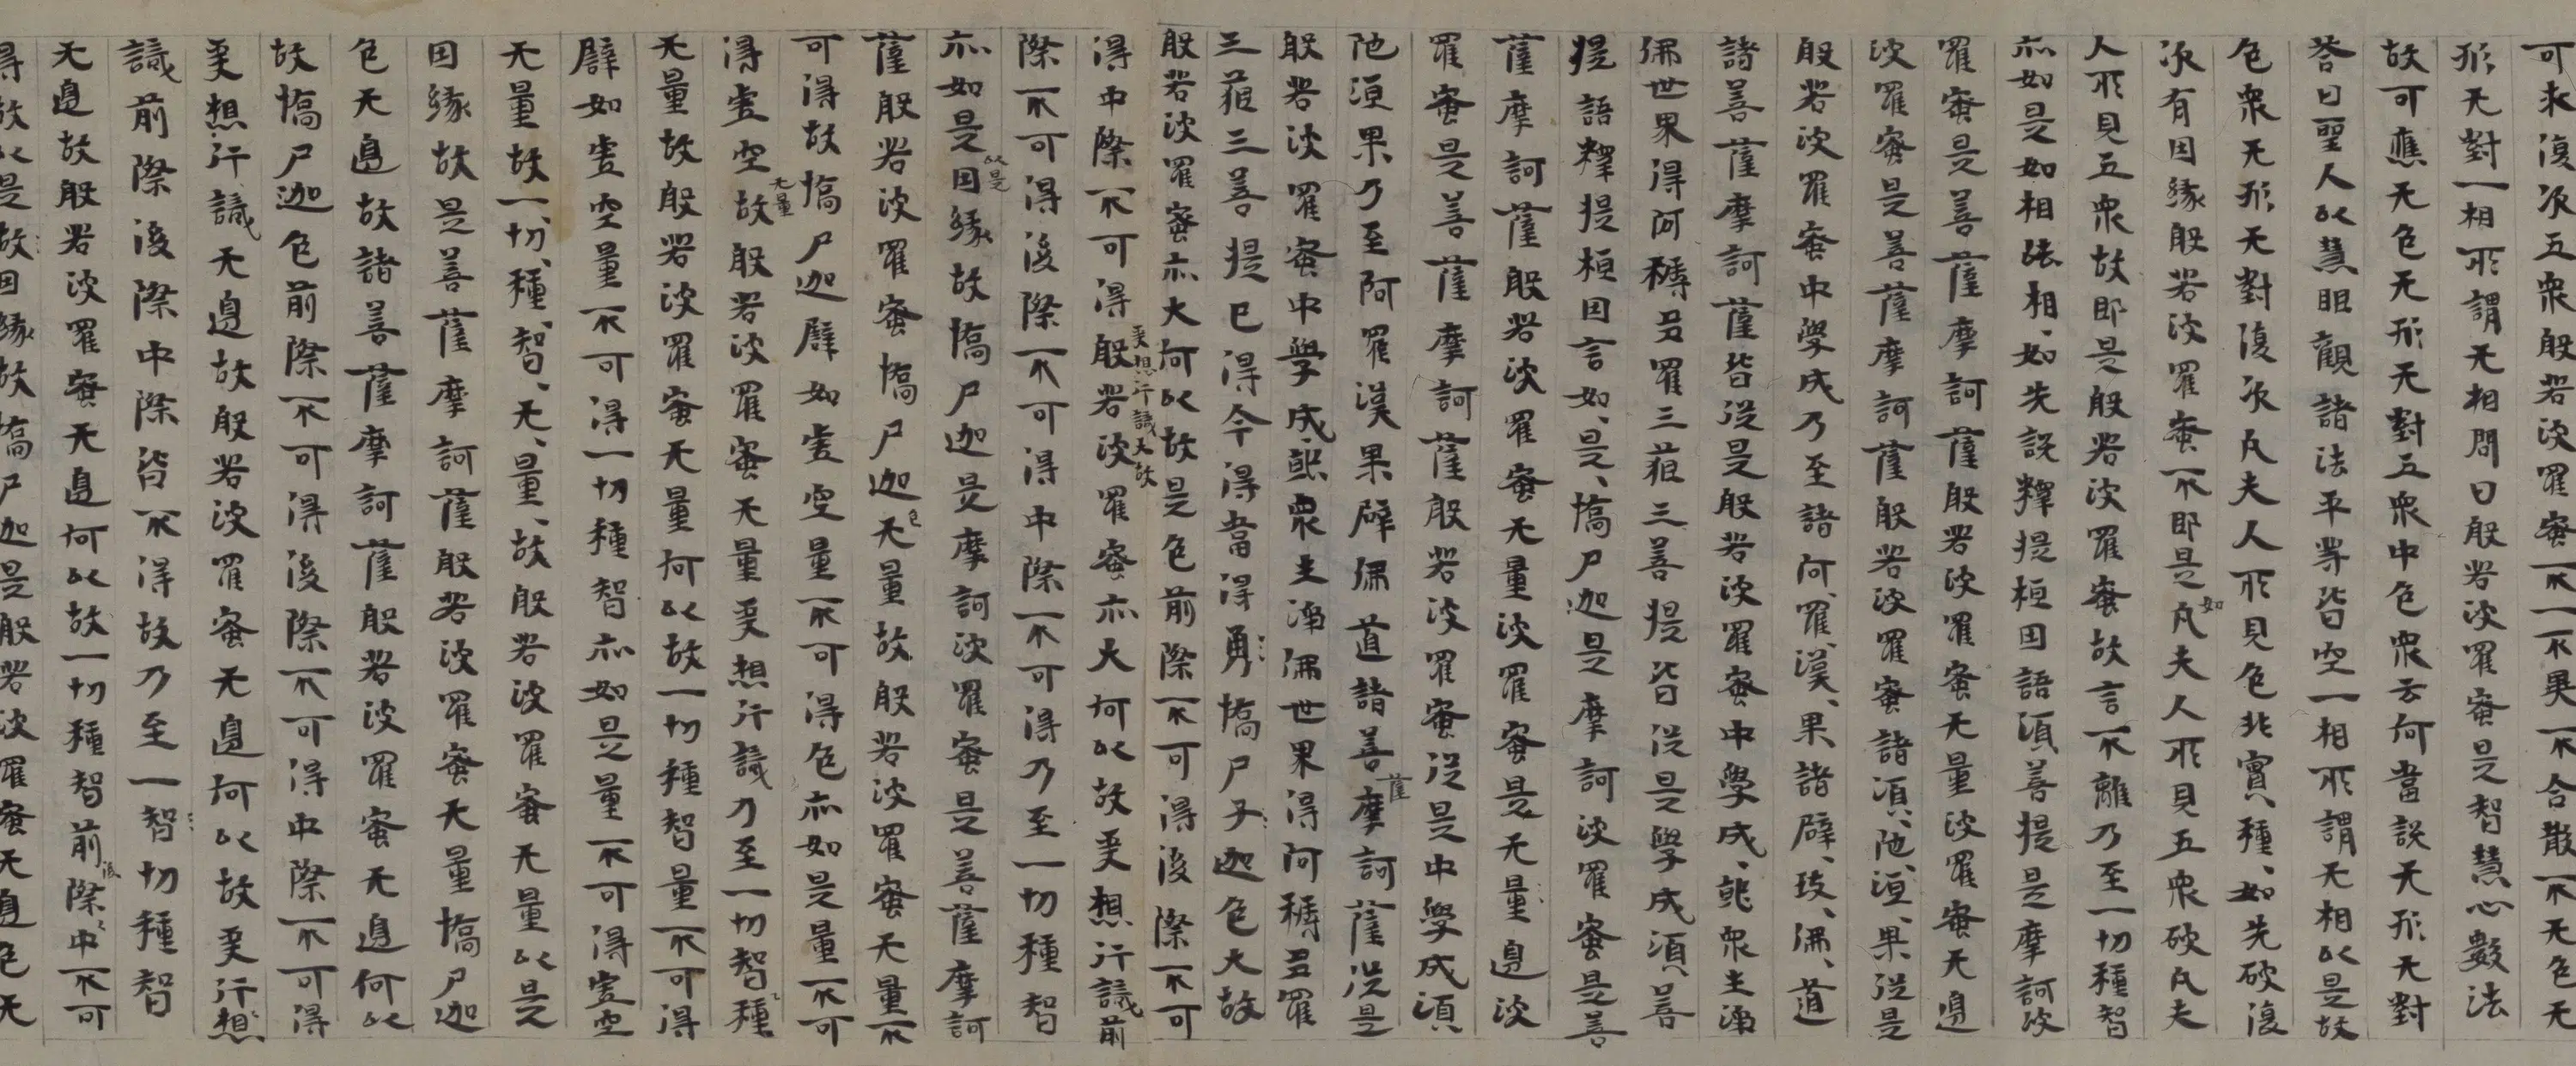 可求復次五衆般若波羅蜜不一不異不合散不无色无
形无對一相所謂无相問曰般若波羅蜜是智慧心數法
故可應无色无形无對五衆中色衆云何當說无形无對
荅曰聖人以慧眼觀諸法平等皆空一相所謂无相以是故
色衆无形无對復次凡夫人所見色非實種〻如先破復
次有因緣般若波羅蜜不即是如凡夫人所見五衆破凡夫
人所見五衆故即是般若波羅蜜故言不離乃至一切種智
亦如是如相法相〻如先說釋提桓因語須菩提是摩訶波
羅蜜是菩薩摩訶薩般若波羅蜜无量波羅蜜无邊
波羅蜜是菩薩摩訶薩般若波羅蜜諸須〻陁〻洹〻果從是
般若波羅蜜中學成乃至諸阿〻羅〻漢〻果諸辟〻支〻佛〻道
諸菩薩摩訶薩皆從是般若波羅蜜中學成〻就衆生淨
佛世界得阿耨多羅三藐三菩提皆從是學成須〻菩
提語釋提桓因言如〻是〻憍尸迦是摩訶波羅蜜是菩
薩摩訶薩般若波羅蜜无量波羅蜜是无量邊波
羅蜜是菩薩摩訶薩般若波羅蜜從是中學成須
陁洹果乃至阿羅漢果辟佛道諸菩薩摩訶薩從是
般若波羅蜜中學成就衆生淨佛世界得阿耨多羅
三藐三菩提已得今得當得勇憍尸子迦色大故
般若波羅蜜亦大何以故是色前際不可得後際不可
得中際不可得受想行識大故般若波羅蜜亦大何以故受想行識前
際不可得後際不可得中際不可得乃至一切種智
亦如是以是因緣故憍尸迦是摩訶波羅蜜是菩薩摩訶
薩般若波羅蜜憍尸迦色无量故般若波羅蜜无量不
可得故憍尸迦辟如虛空量不可得色亦如是量不可
得虛空无量故般若波羅蜜无量受想行識乃至一切智種
无量故般若波羅蜜无量何以故一切種智量不可得
譬如虛空量不可得一切種智亦如是量不可得虛空
无量故一〻切〻種〻智〻无〻量〻故般若波羅蜜无量以是
因緣故是菩薩摩訶薩般若波羅蜜无量憍尸迦
色无邊故諸菩薩摩訶薩般若波羅蜜无邊何以
故憍尸迦色前際不可得後際不可得中際不可得
受想行識无邊故般若波羅蜜无邊何以故受行想
識前際後際中際皆不得故乃至一智切種智
无邊故般若波羅蜜无邊何以故一切種智前後際〻中不可
得故以是故因緣故憍尸迦是般若波羅蜜无邊色无